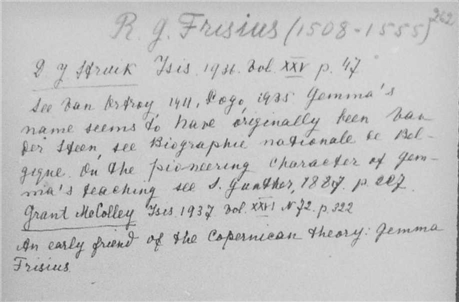 R. G. Frisius (1508-1555) 262
D. J. Struik Isis. 1936. Vol. XXV p. 47
See Van Ortroy 1911, Pogo, 1935 Gemma's
name seems to have originally been Van
der Steen see Biographie nationale de Bel-
gique. On the pioneering character of Gem-
ma's teaching see S. Gunther, 1887. p 207
Grant McColley Isis. 1937. Vol. XXVI N 72. p. 322
An early friend of the Copernican theory: Gemma
Frisius